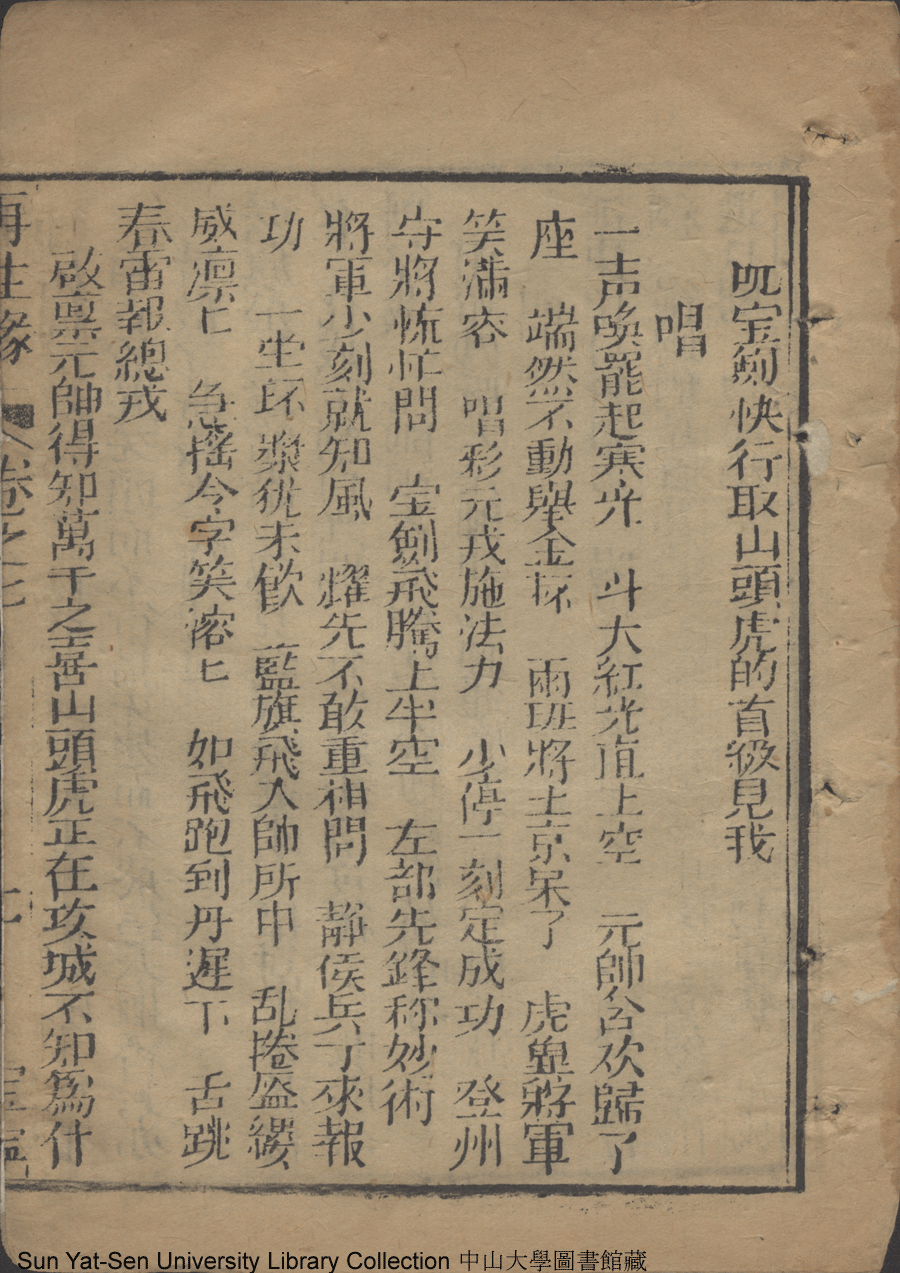 吼宝劍快行取山頭虎的首級見我
唱
一声喚罷起寒光 斗大紅光直上空 元帥含欢歸了
座 端然不動舉金杯 兩班將士京呆了 虎奥將軍
笑满容 唱彩元戎施法力 少停一刻定成功 登州
守將慌忙問 宝劍飛騰上半空 左部先鋒称妙術
將軍少刻就知風 耀先不敢重相問 靜侯兵丁來報
功 一坐环漿犹未飮 藍旗飛入帥所中 乱捲盔纓
威凛匕 急搖令字笑溶匕 如飛跑到丹遲下 舌跳
春雷報總戎
啟禀元帥得知萬千之喜山頭虎正在攻城不知爲什
再生緣 卷之七
Sun Yat-Sen University Library Collection 中山大學圖書館藏